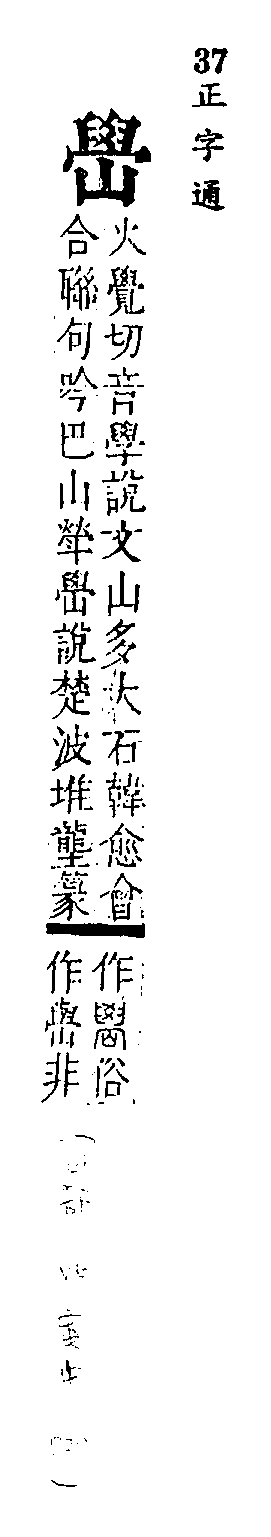 37正字通
嶨
火覺切音學說文山多大石韓愈會
合聯句吟巴山犖嶨說楚波堆壟篆
作俗
作非